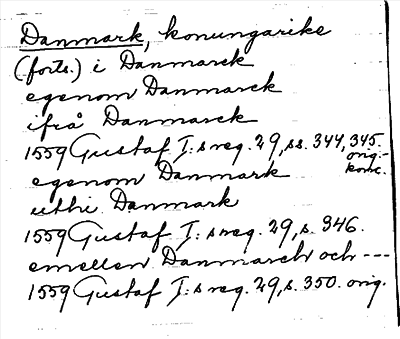 Danmark, konungarike
(forts.) i Danmarck
egenom Danmarck
ifrå Danmarck
1559 Gustaf I:s reg. 29, ss. 344, 345.
orig.-
konc.
egenom Danmark
uthi Danmark
1559 Gustaf I:s reg. 29, s. 346.
emellen Danmarck och ---
1559 Gustaf I:s reg. 29, s. 350. orig.